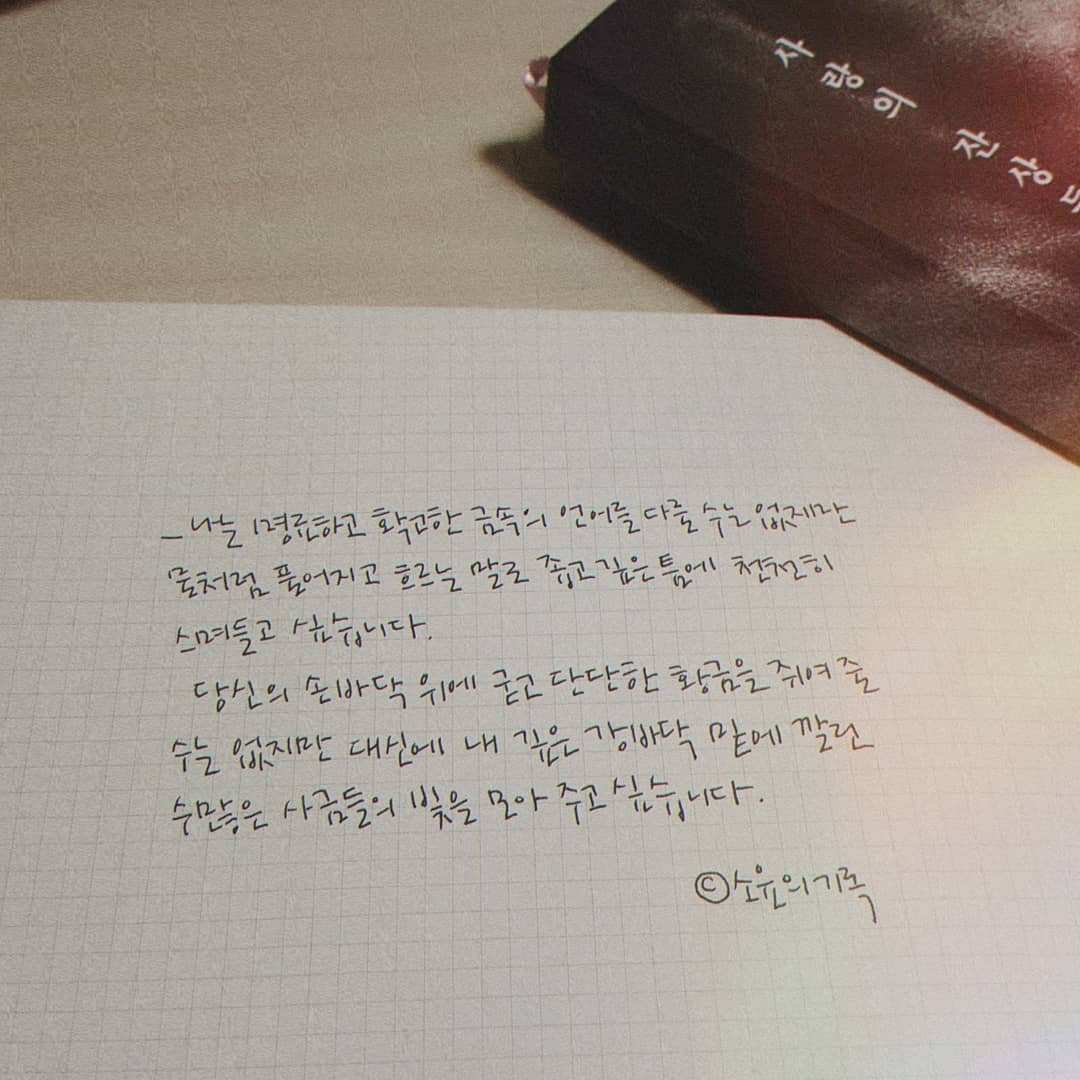 사랑의 잔상
_나는 명료하고 확고한 금속의 언어를 다룰 수는 없지만
물처럼 풀어지고 흐르는 말로 좁고 깊은 틈에 천천히
스며들고 싶습니다.
당신의 손바닥 위에 굳고 단단한 황금을 쥐여 줄
수는 없지만 대신에 내 깊은 강바닥 밑에 깔린
수많은 사금들의 빛을 모아 주고 싶습니다.
©소윤의기록